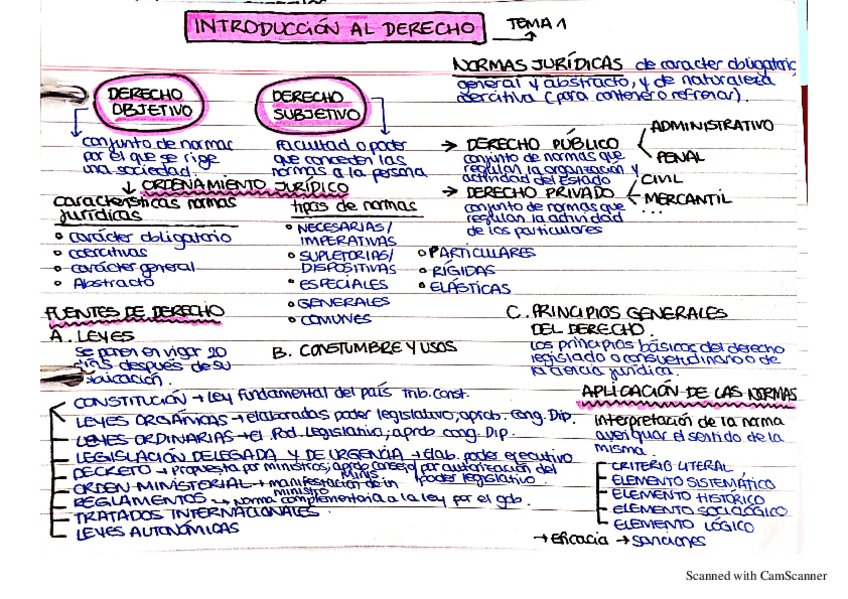 INTRODUCCIÓN AL DERECHO TEMA 1
NORMAS JURÍDICAS de caracter obligatorio,
general y abstracto, y de naturaleza
coercitiva (para contener o refrenar).
DERECHO
OBJETIVO
conjunto de normas
por el que se rige
una sociedad.
DERECHO
SUBJETIVO
Facultad o poder
que conceden las
normas a la persona
→ DERECHO PÚBLICO
conjunto de normas que
regulan la organización y
actividad del Estado
ADMINISTRATIVO
PENAL
→ DERECHO PRIVADO
conjunto de normas que
regulan la actividad
de los particulares
CIVIL
MERCANTIL
...
↓ ORDENAMIENTO JURÍDICO
características normas
jurídicas
• carácter obligatorio
• coercitivas
• carácter general
• Abstracto
tipos de normas
• NECESARIAS/
IMPERATIVAS
• SUPLETORIAS/
DISPOSITIVAS
• ESPECIALES
• GENERALES
• COMUNES
• PARTICULARES
• RÍGIDAS
• ELÁSTICAS
FUENTES DE DERECHO
A. LEYES
se ponen en vigor 20
días después de su
B. CONSTUMBRE Y USOS
C. PRINCIPIOS GENERALES
DEL DERECHO.
Los principios básicos del derecho
legislado o consuetudinario o de
la ciencia jurídica.
CONSTITUCIÓN → Ley fundamental del país Trib. Const.
LEYES ORGÁNICAS → elaboradas poder legislativo; aprob. Cong. Dip.
LEYES ORDINARIAS → el Pod. Legislativo; aprob cong. Dip.
LEGISLACIÓN DELEGADA Y DE URGENCIA → Elab. poder ejecutivo
DECRETO → propuesta por ministros; aprob consejo minis por autorización del
poder legislativo.
ORDEN MINISTERIAL → manifestación de un
ministro
REGLAMENTOS → Norma complementaria a la ley por el gob.
TRATADOS INTERNACIONALES.
LEYES AUTONÓMICAS
APLICACIÓN DE LAS NORMAS
Interpretación de la norma
averiguar el sentido de la
misma.
CRITERIO LITERAL
ELEMENTO SISTEMÁTICO
ELEMENTO HISTÓRICO
ELEMENTO SOCIOLÓGICO
ELEMENTO LÓGICO
→ Eficacia → sanciones
Scanned with CamScanner